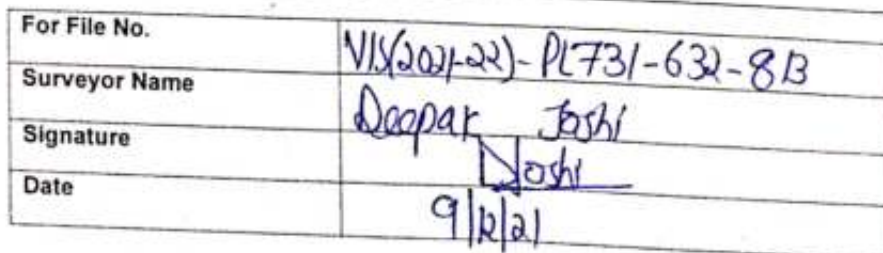 For File No. VIS(2021-22)-PL731-632-813
Surveyor Name Deepak Joshi
Signature DJoshi
Date 9/12/21